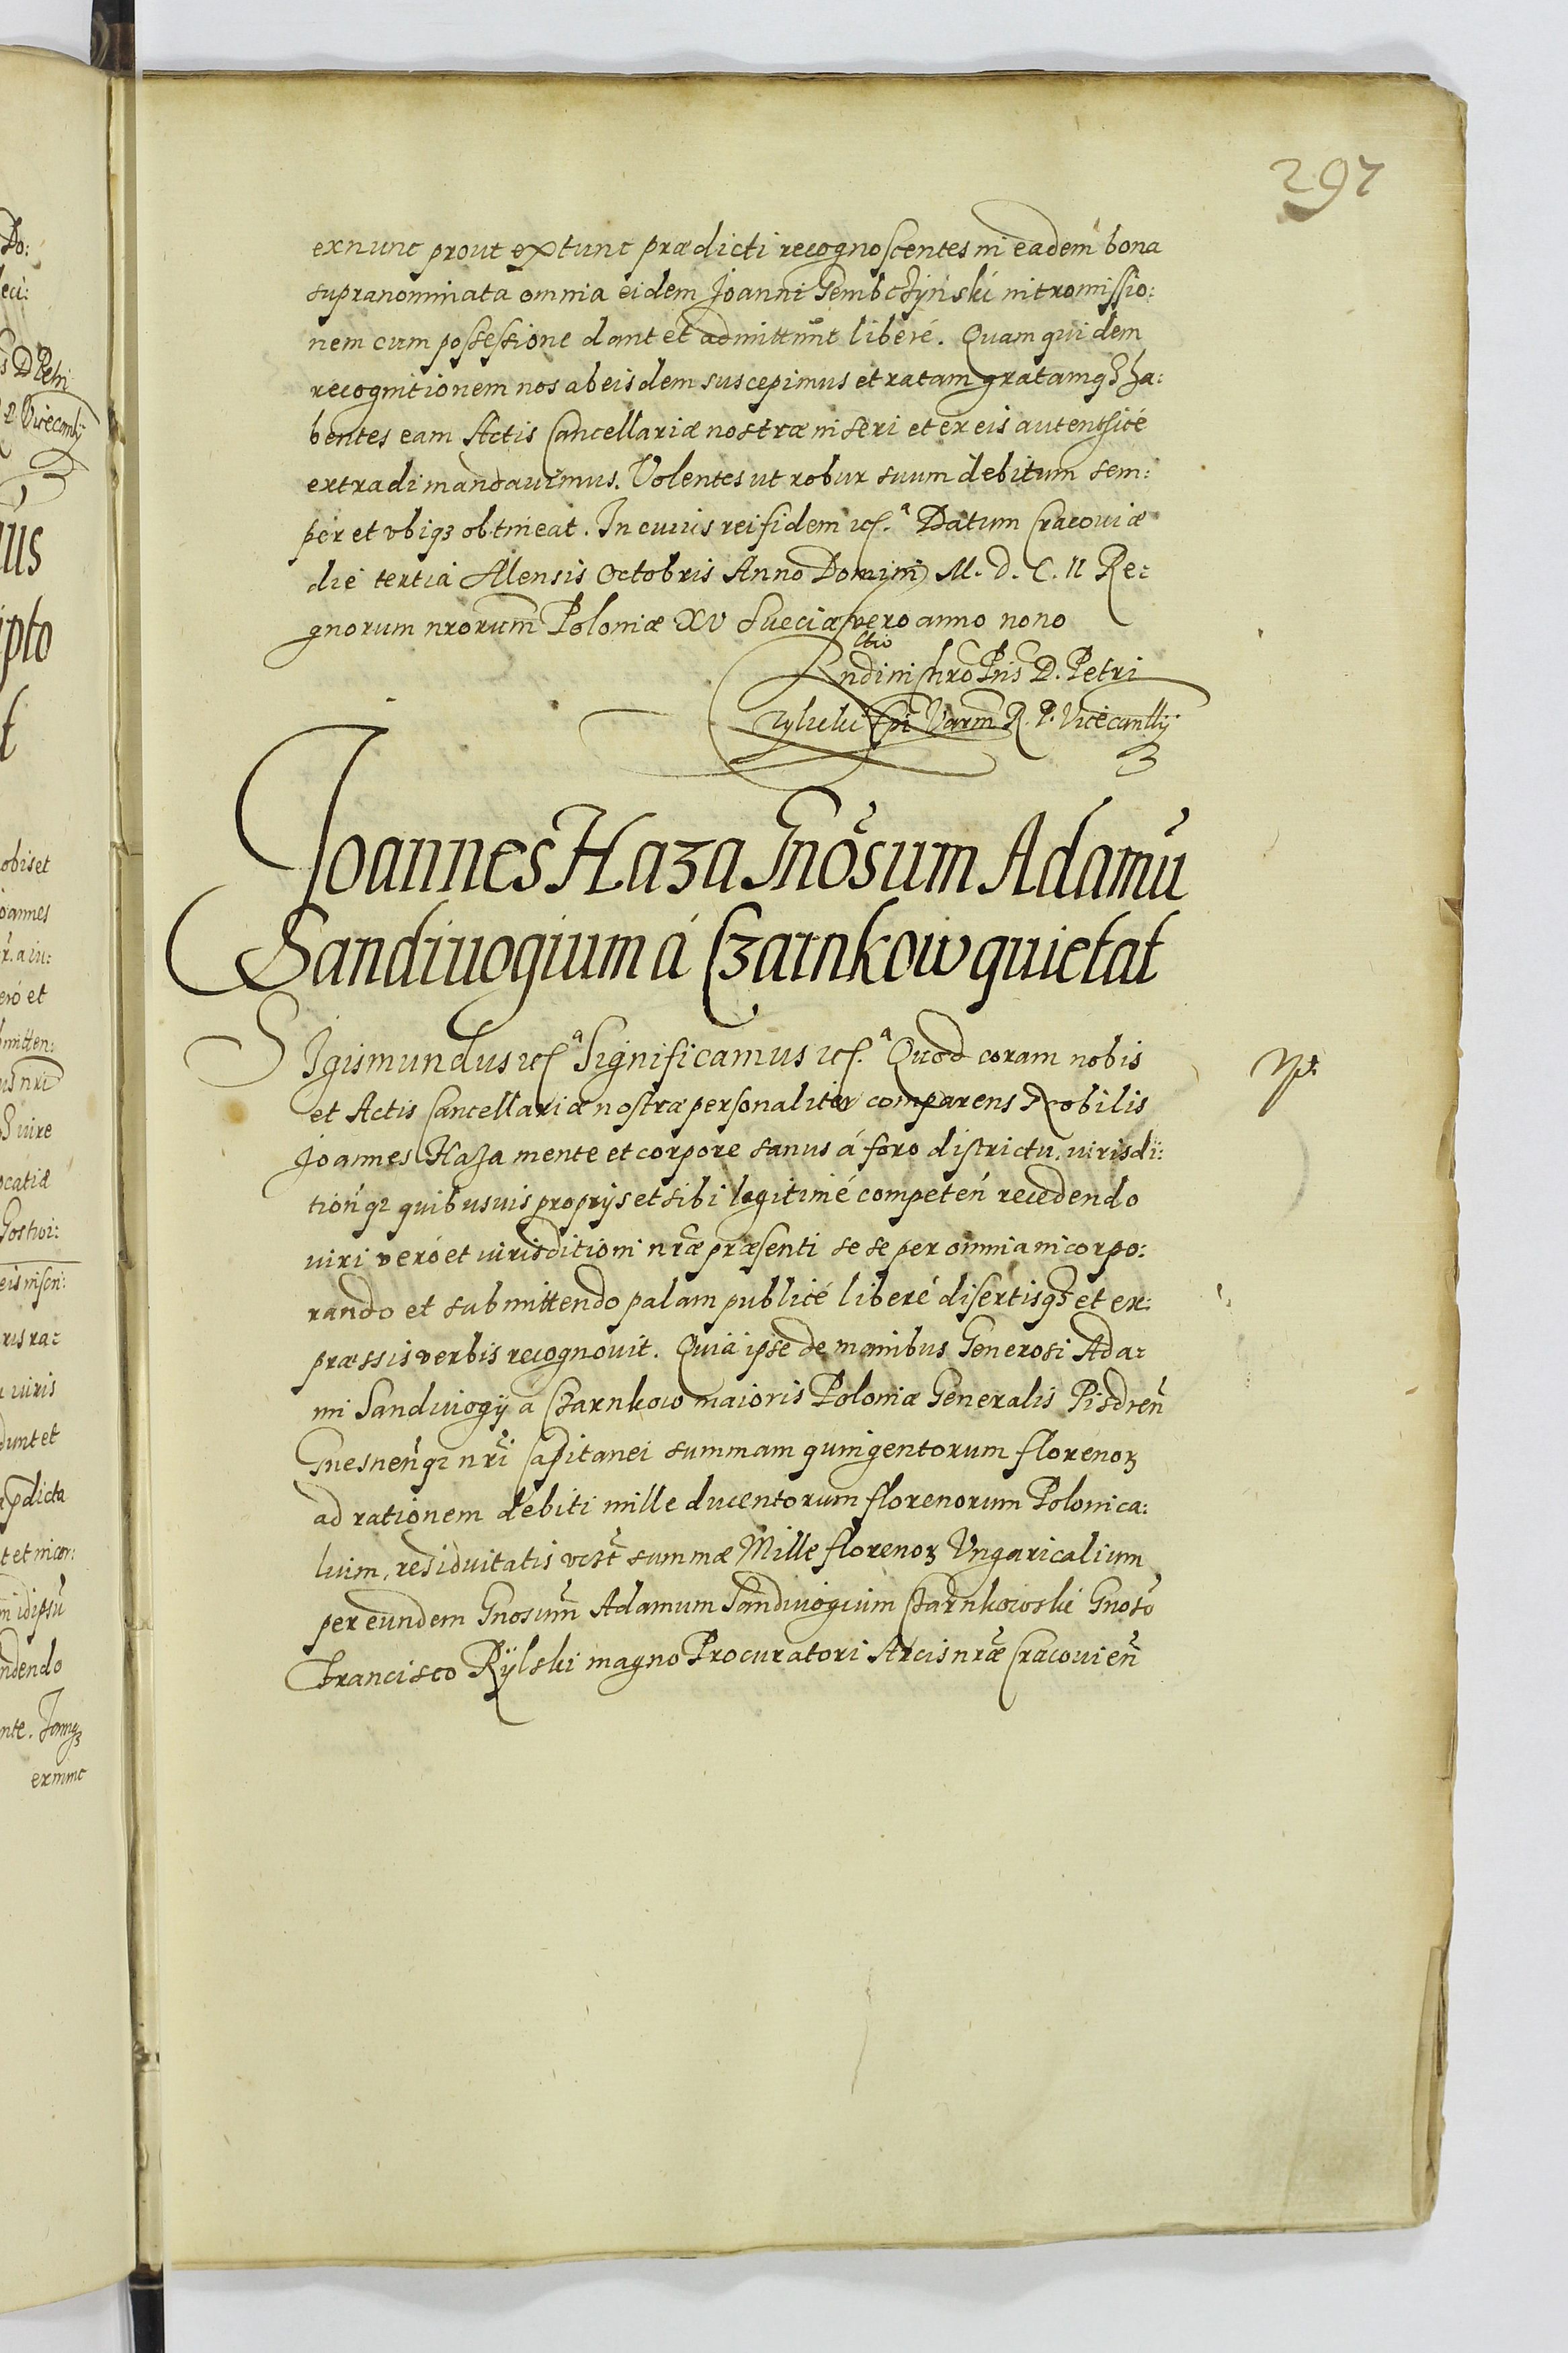 297
exnunc prout extunc prædicti recognoscentes in eadem bona
supranominata omnia eidem Joanni Gembczÿnski intromissio:
nem cum possessione dant et admittunt liberé. Quam quidem
recognitionem nos ab eisdem suscepimus et ratam gratamqꝫ ha:
bentes eam Actis Cancellariæ nostræ inseri et ex eis autenthicé
extradi mandauimus. Volentes ut robur suum debitum sem:
per et vbiqꝫ obtineat. In cuius rei fidem etc.ª Datum Cracouiæ
die tertia Mensis Octobris Anno Domini M. D. C. II Re:
gnorum nrorum Poloniæ XV Sueciæ vero anno nono
ctio
Rndi in Chro Pris D. Petri
Tylicki Epi Varm R. P. Vicecancllij
Joannes Haza Gnosum Adamu
Sandiuogium á Czarnkow quietat
Sigismundus etcª Significamus etc.ª Quod coram nobis
et Actis Cancellariæ nostræ personaliter comparens Nobilis
Joannes Haza mente et corpore sanus á foro districtu, iurisdi:
tionqꝫ quibusuis proprijs et sibi legitimé competen recedendo
iuri veró et iurisditioni nræ præsenti se se per omnia incorpo:
rando et submittendo palam publicé liberé disertisqꝫ et ex:
præssis verbis recognouit. Quia ipse de manibus Generosi Ada:
mi Sandiuogij á Czarnkow maioris Poloniæ Generalis Pisdren
Gnesnenqꝫ nri Capitanei summam quingentorum florenoꝝ
ad rationem debiti mille ducentorum florenorum Polonica:
lium, residuitatis summæ Mille florenoꝝ Vngaricalium
per eundem Gnosum Adamum Sandiuogium Czarnkowski Gnoso
Francisco Rÿlski magno Procuratori Arcis nræ Cracouien